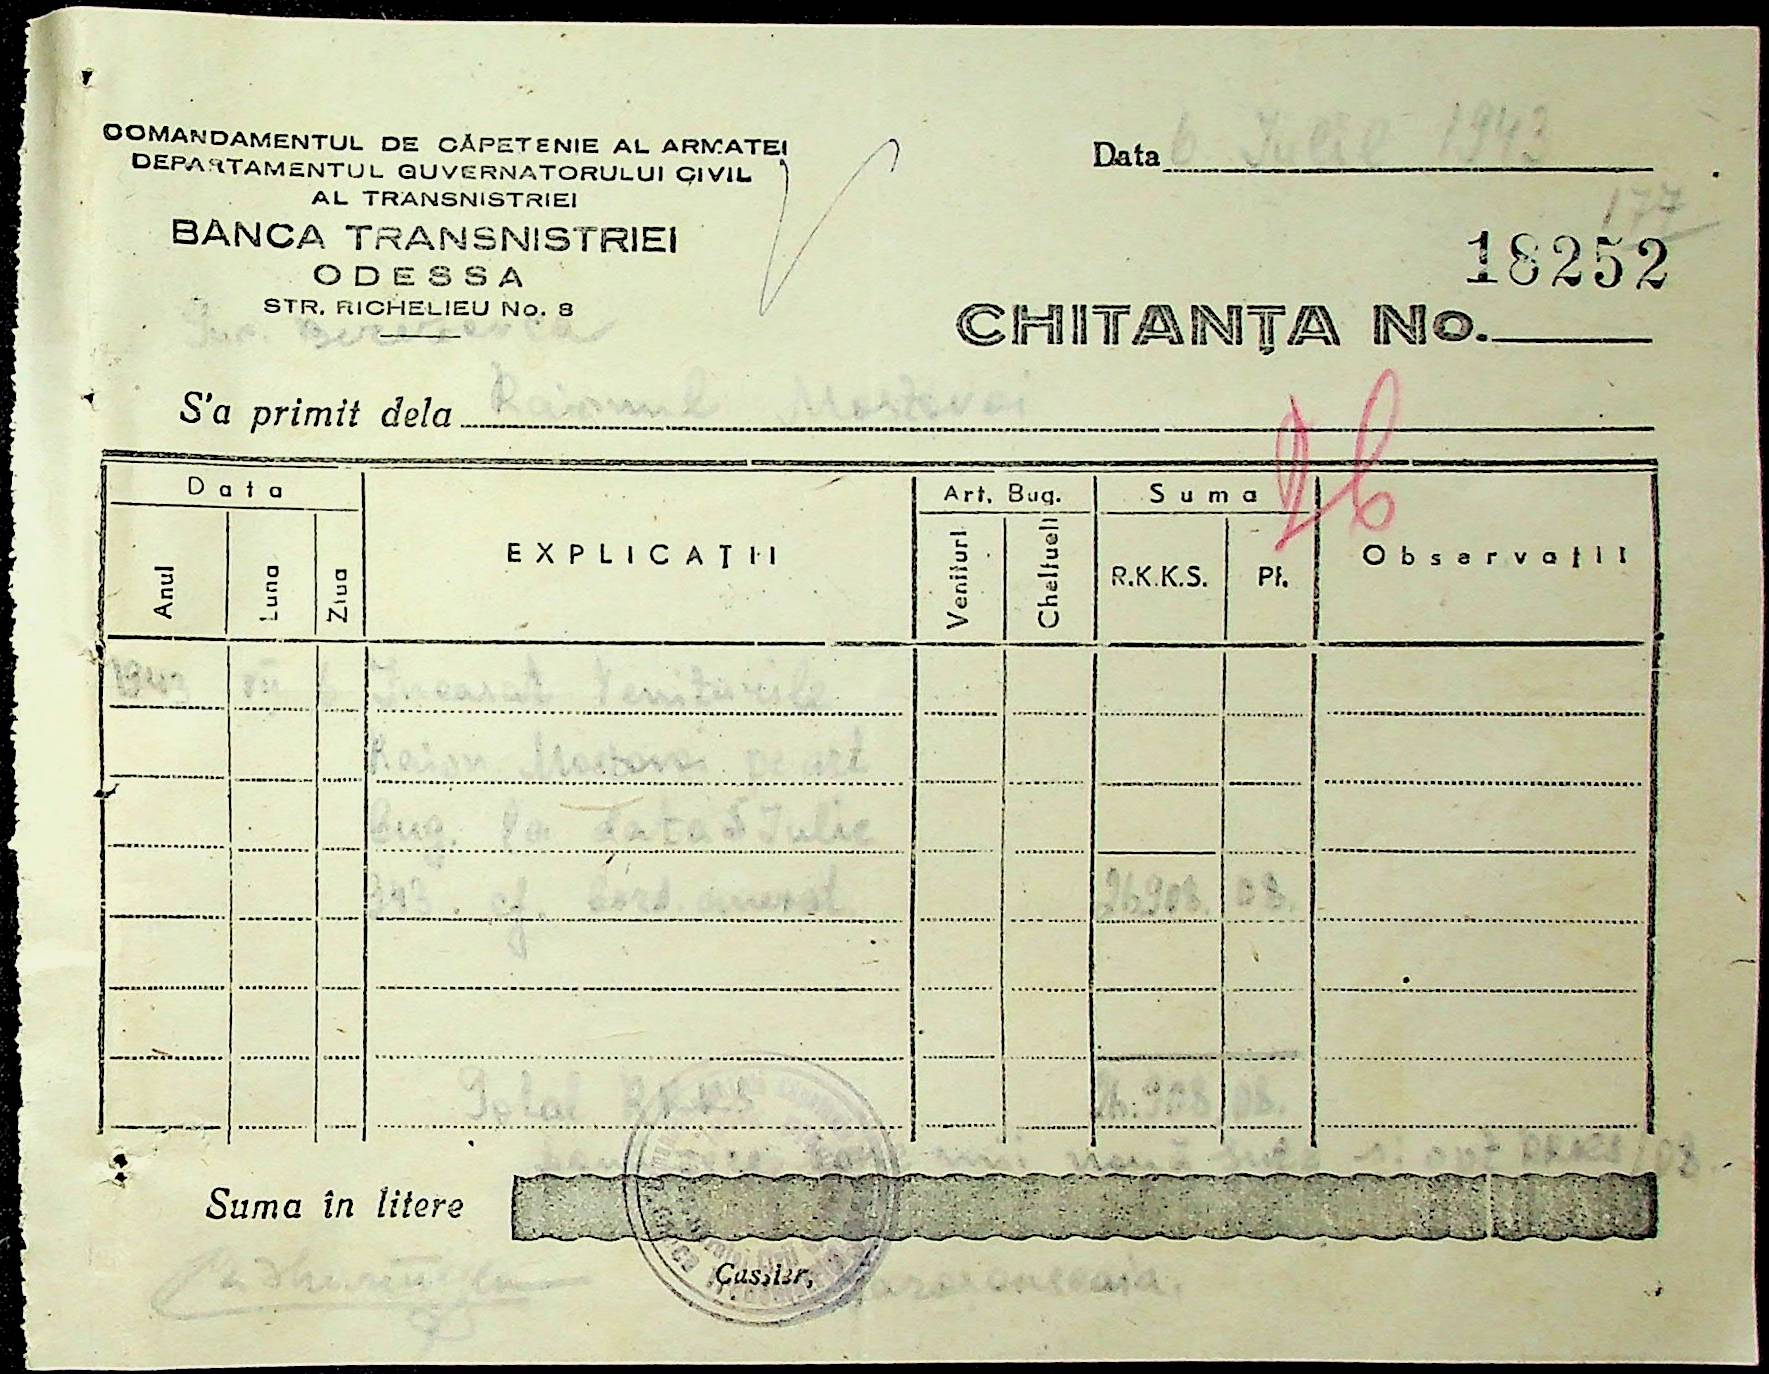 COMANDAMENTUL DE CĂPETENIE AL ARMATEI
DEPARTAMENTUL GUVERNATORULUI CIVIL
AL TRANSNISTRIEI
BANCA TRANSNISTRIEI
ODESSA
STR. RICHELIEU No. 8
Data 6 Iulie 1943
177
18252
CHITANȚA No.
S'a primit dela Raionul Mostovoi
26
Data
Anul
Luna
Ziua
EXPLICAȚII
Art. Bug.
Venituri
Cheltueli
Suma
R.K.K.S.
Pf.
Observații
1943 VII 6 Incasat Veniturile
Raion Mostovoi
Bug. la data 5 Iulie
943. cf. bord. anexat 26908. 08.
Total RKKS 26.908 08.
Suma în litere
Cassier,